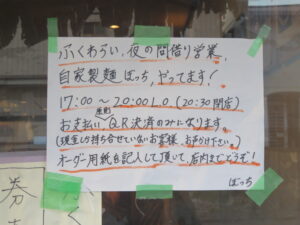 ふくわらい、夜の間借り営業、
自家製麺 ぼっち、やってます!
17:00〜20:00 L.O.(20:30閉店)
お支払い、原則QR決済のみになります。
(現金しか持ち合せていないお客様、お声がけ下さい。)
オーダー用紙を記入して頂いて、店内までどうぞ!
ぼっち
券